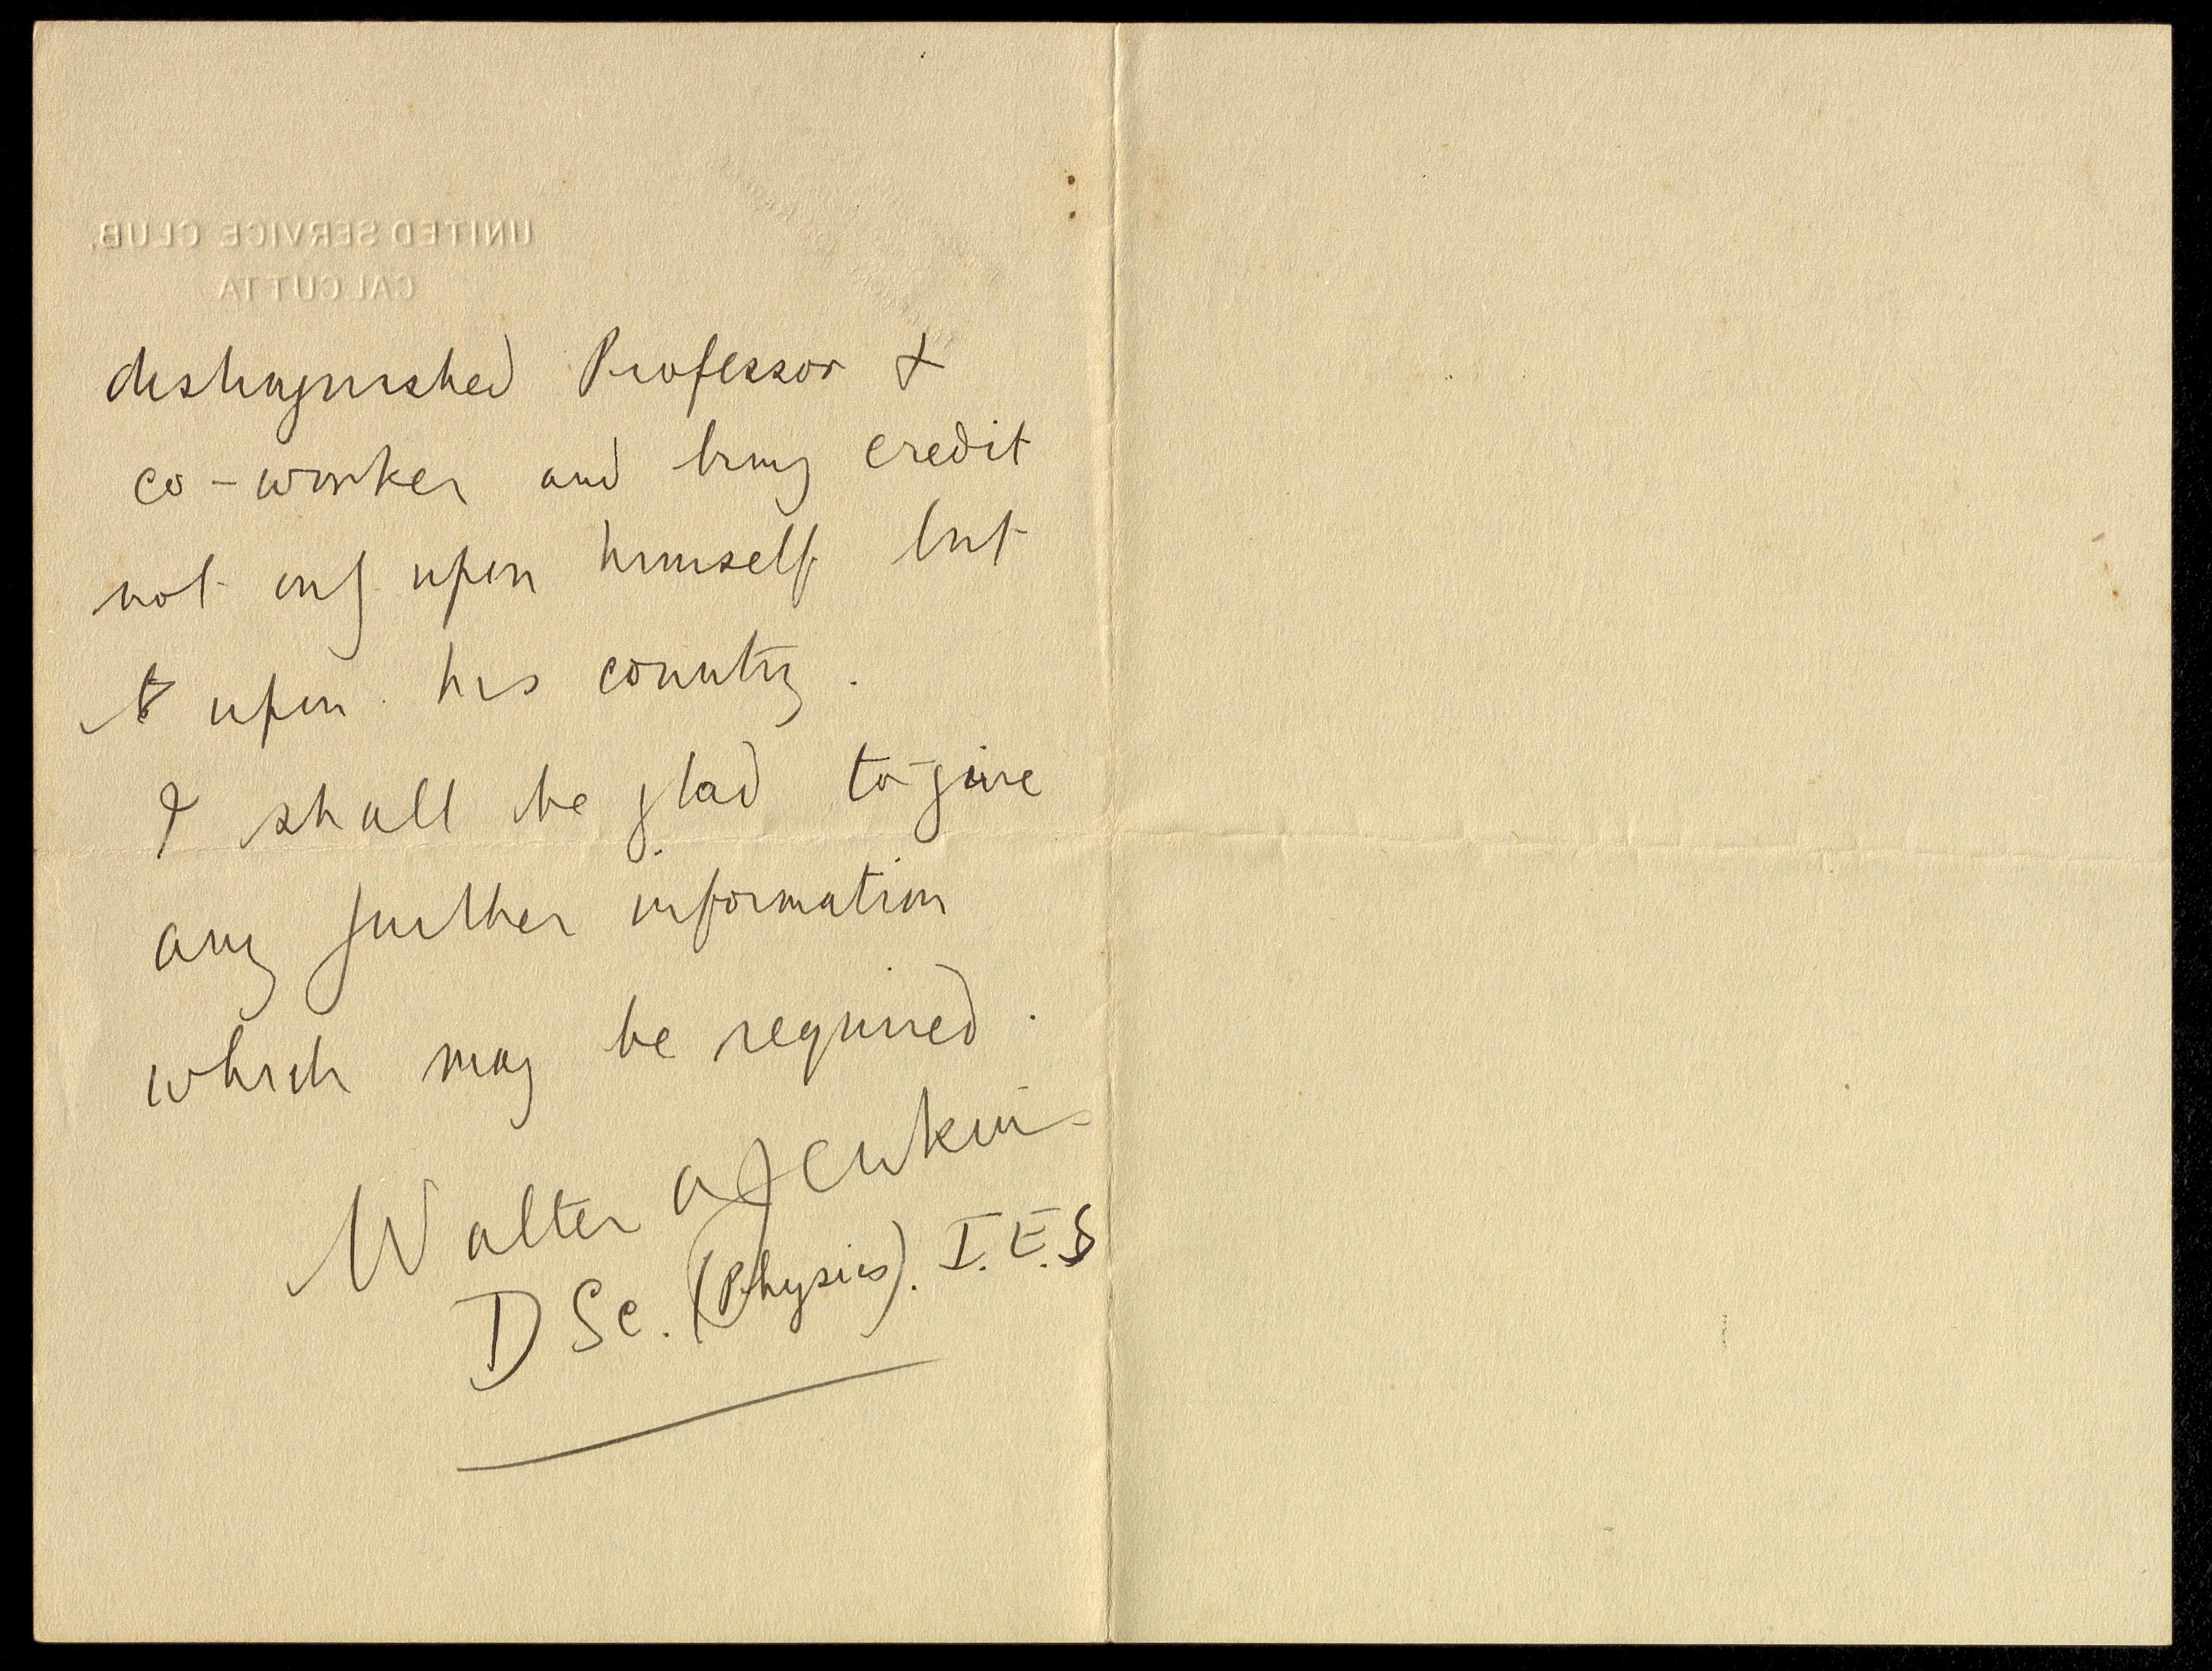 UNITED SERVICE CLUB,
CALCUTTA
distinguished Professor &
co-worker and bring credit
not only upon himself but
upon his country.
I shall be glad to give
any further information
which may be required.
Walter A Jenkins
DSc. (Physics). I.E.S